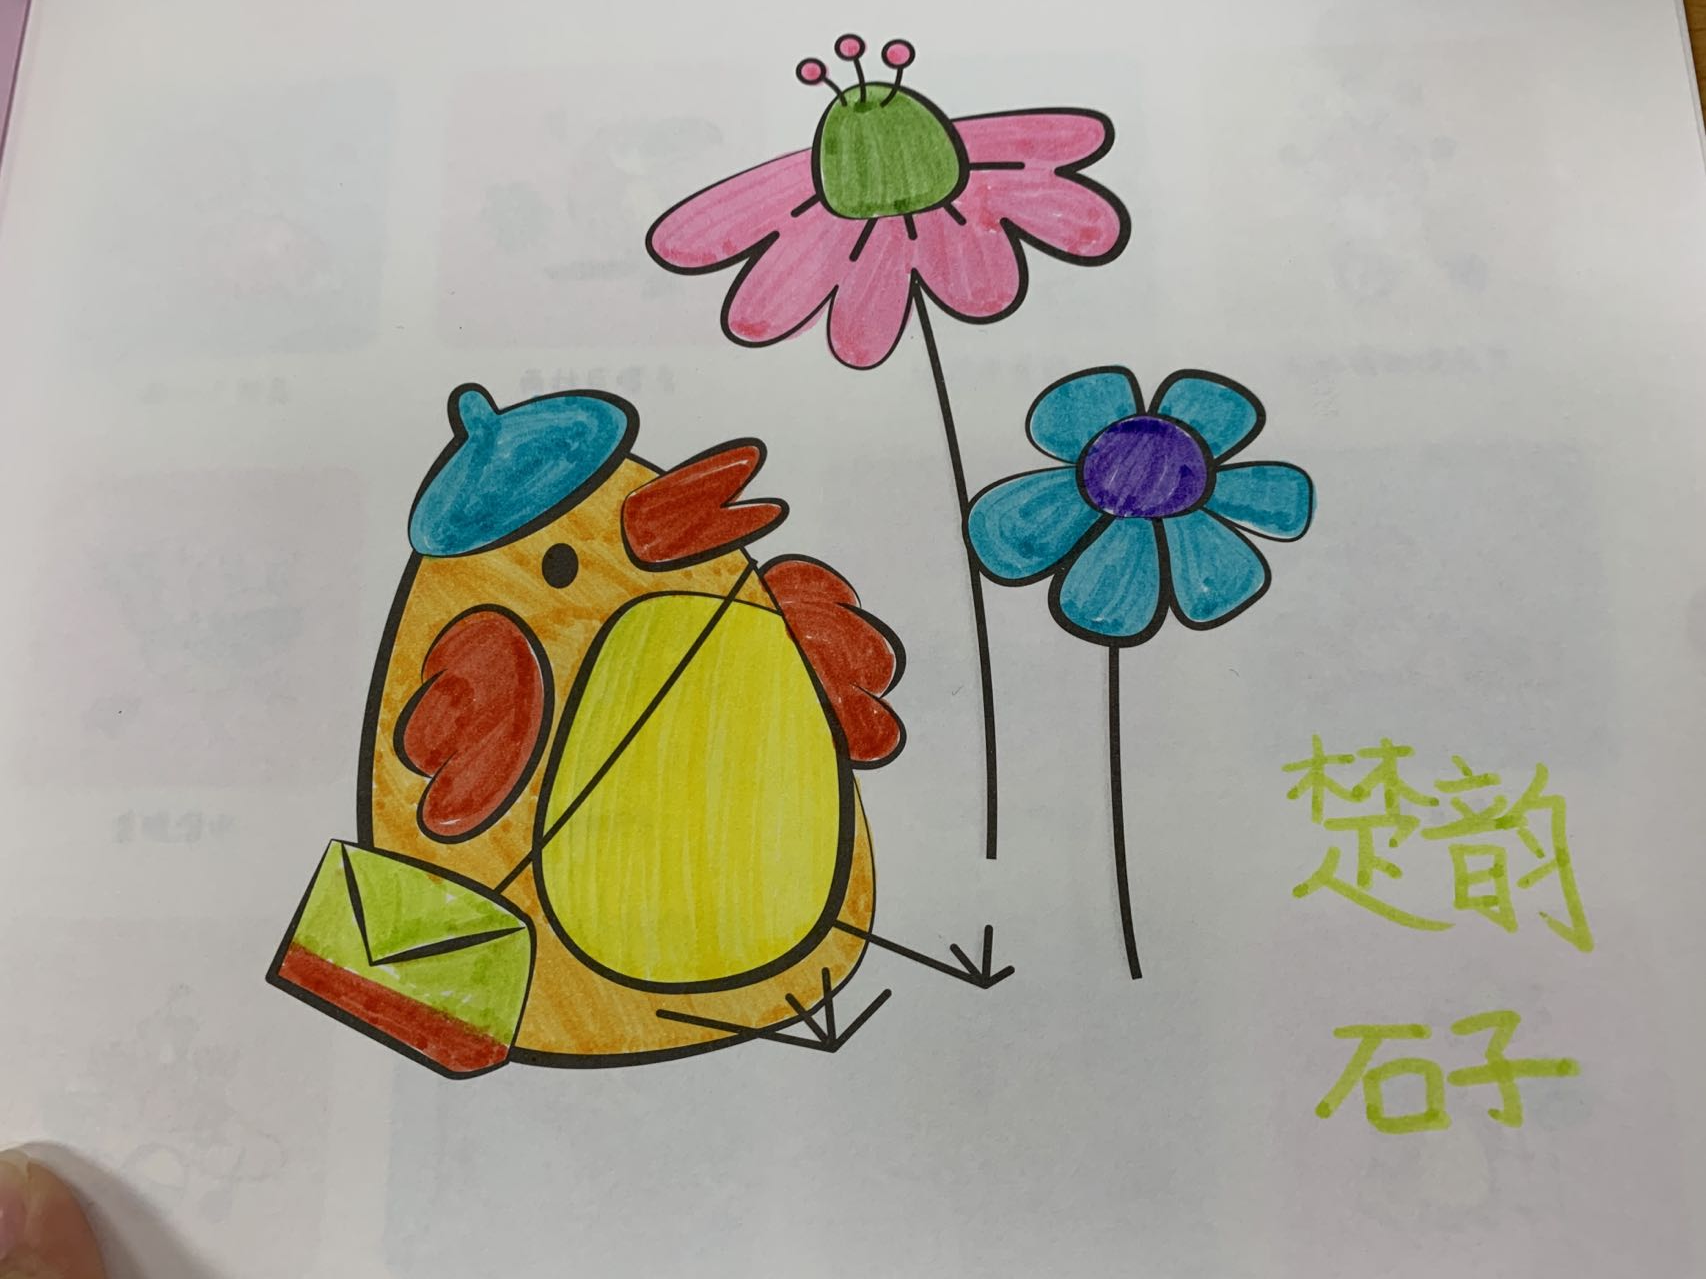 楚韵
石子